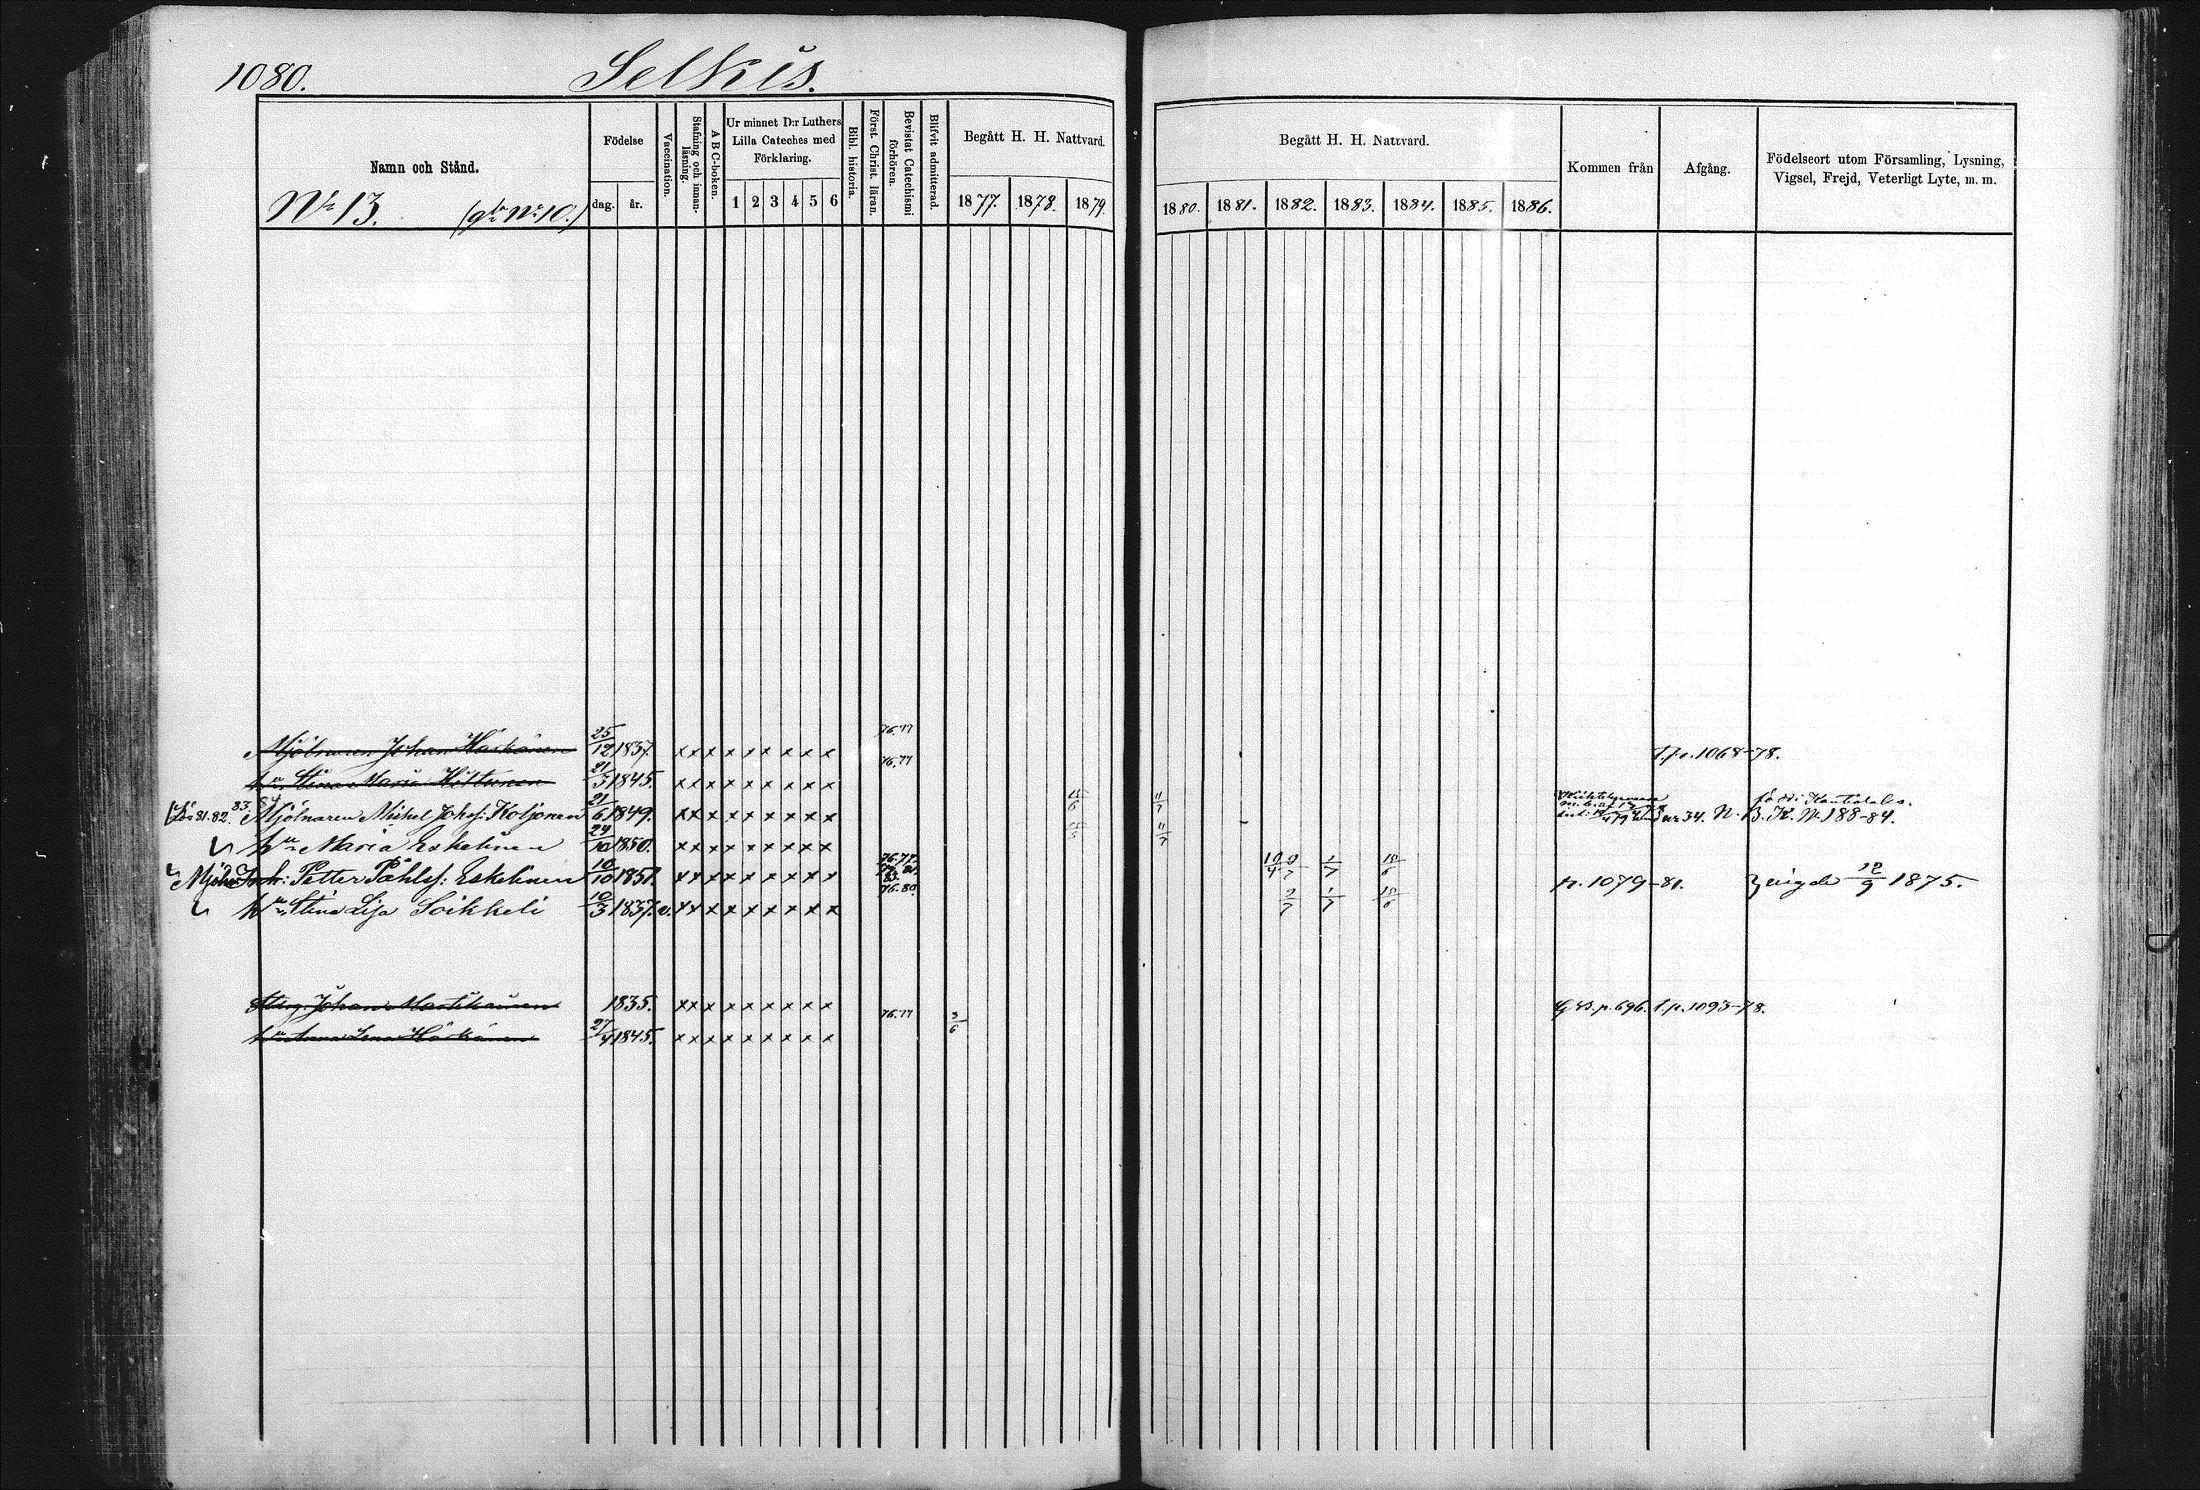 1080. Selkis.
Namn och Stånd.
Nr 13. (gla Nr 10.)
Födelse
dag. år.
Vaccination.
Stafning och innan-
läsning.
A B C-boken.
Ur minnet D:r Luthers
Lilla Cateches med
Förklaring.
1 2 3 4 5 6
Bibl. historia.
Först. Christ. läran.
Bevistat Catechismi
förhören.
Blifvit admitterad.
Begått H. H. Nattvard.
1877. 1878. 1879.
Begått H. H. Nattvard.
1880. 1881. 1882. 1883. 1884. 1885. 1886.
Kommen från
Afgång.
Födelseort utom Församling, Lysning,
Vigsel, Frejd, Veterligt Lyte, m. m.
Mjölnaren Johan Häikänen 25/12 1837. x x x x x x x x x 76.77 t. p. 1068-78.
hu Stina Maria Hiltunen 21/3 1845. x x x x x x x x x 76.77
81.82. 83. Mjölnaren Michel Johss: Koljonen 21/6 1849. x x x x x x x x x 11/7 född i Kontiolaks.
B. K. Nr 188-84.
hu Maria Eskelinen 24/10 1850. x x x x x x x x x 11/7
Mjöln: Joh: Petter Påhlss: Eskelinen 10/10 1851. x x x x x x x x x 76.77. 1/7 p. 1079-81. vigde 12/9 1875.
hu Stina Lisa Soikkeli 10/3 1837. v. x x x x x x x x x 76.80 2/7 1/7
Johan Martikainen 1835. x x x x x x x x x p. 696. t. p. 1093-78.
hu Anna Lena Häikänen 27/4 1845. x x x x x x x x x 76.77 3/6